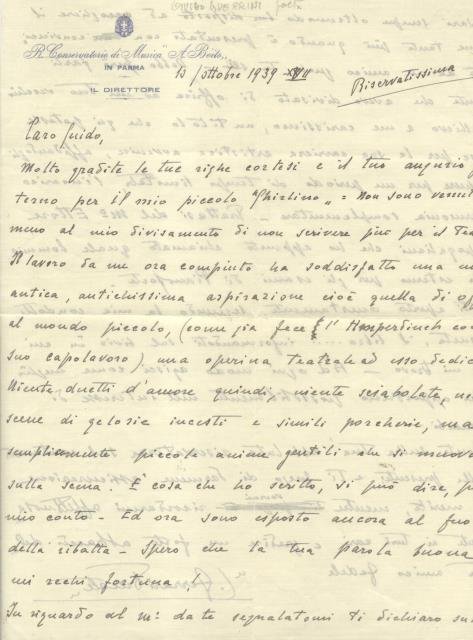 GUIDO GUERRINI
R. Conservatorio di Musica "A. Boito"
IN PARMA
IL DIRETTORE
10 Ottobre 1939 XVII
Riservatissima
Caro Guido,
Molto gradite le tue righe cortesi e il tuo augurio f
terno per il mio piccolo "Ghirlino" = Non sono venut
meno al mio divisamento di non scrivere più per il Tea
Il lavoro da me ora compiuto ha soddisfatto una m
antica, antichissima aspirazione cioè quella di of
al mondo piccolo, (come già fece l'Humperdinck co
suo capolavoro), una operina teatrale ad esso dedic
Niente duetti d'amore quindi, niente sciabolate, n
scene di gelosie incesti e simili porcherie, ma
semplicemente piccole anime gentili che si muovo
sulla scena. È cosa che ho scritto, si può dire, p
mio conto - Ed ora sono esposto ancora al fuo
della ribalta - Spero che la tua parola buona
mi rechi fortuna!
In riguardo al m° da te segnalatomi ti dichiaro su